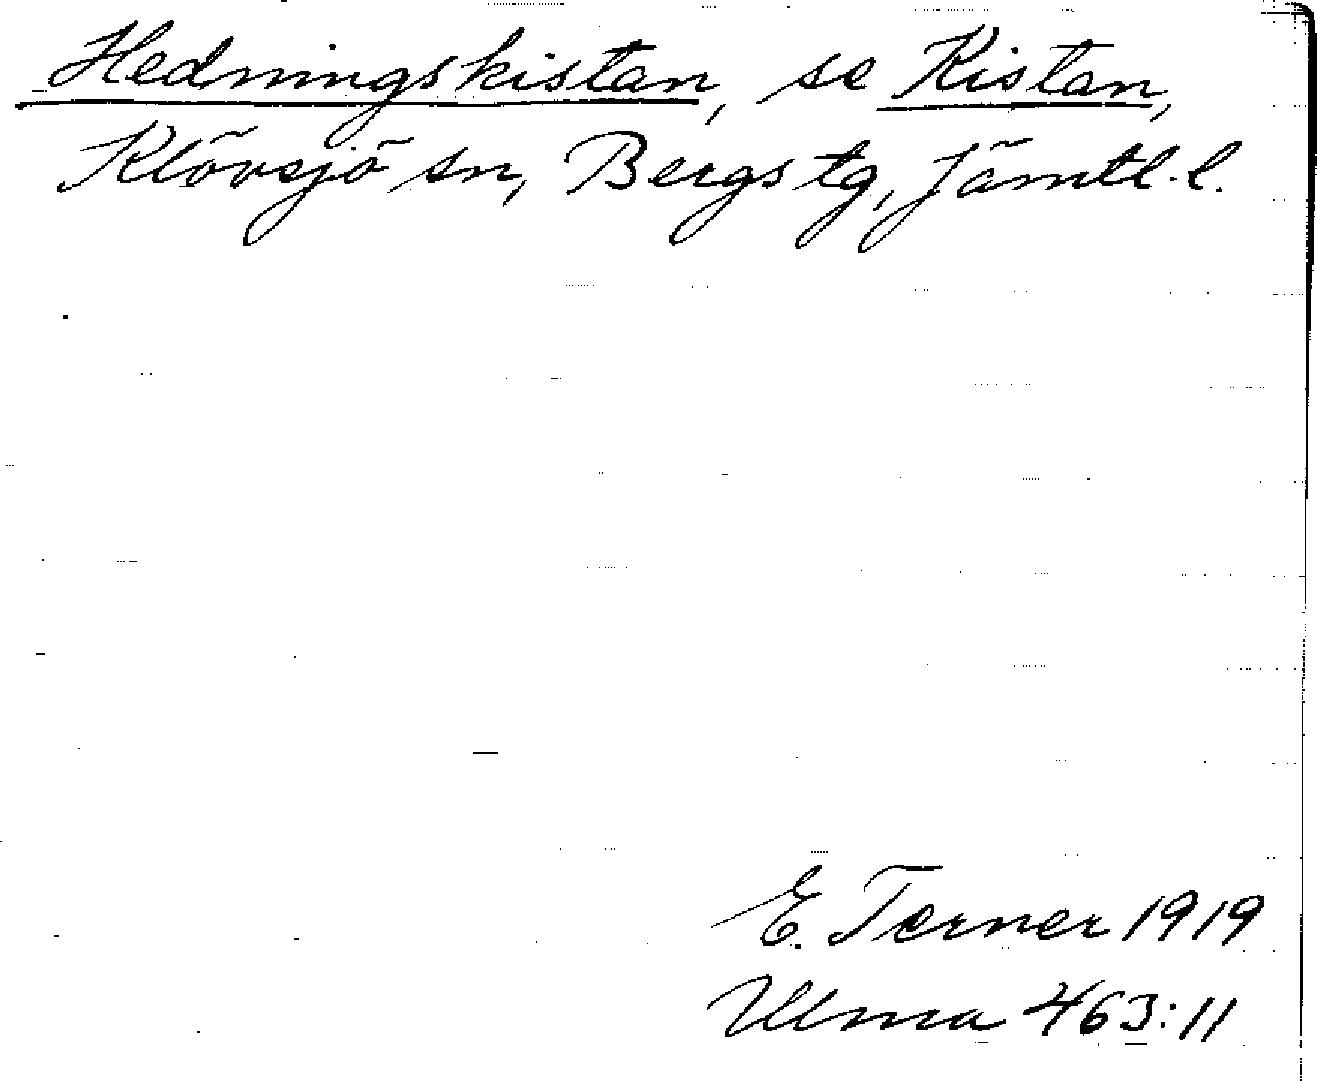 Hedningskistan, se Kistan,
Klövsjö sn, Bergs tg, Jämtl. l.
E. Terner 1919
Ulma 463:11